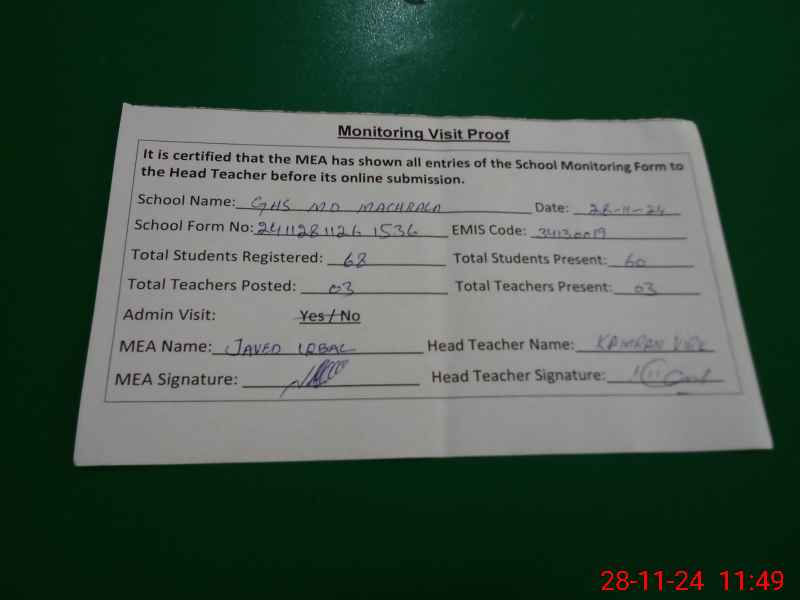 Monitoring Visit Proof
It is certified that the MEA has shown all entries of the School Monitoring Form to
the Head Teacher before its online submission.
School Name: GHS MD MACHRALA Date: 28-11-24
School Form No: 2411281126 1536 EMIS Code: 34130019
Total Students Registered: 68 Total Students Present: 60
Total Teachers Posted: 03 Total Teachers Present: 03
Admin Visit: Yes / No
MEA Name: JAVED IQBAL Head Teacher Name: KAMRAN VIRK
MEA Signature: Head Teacher Signature:
28-11-24 11:49